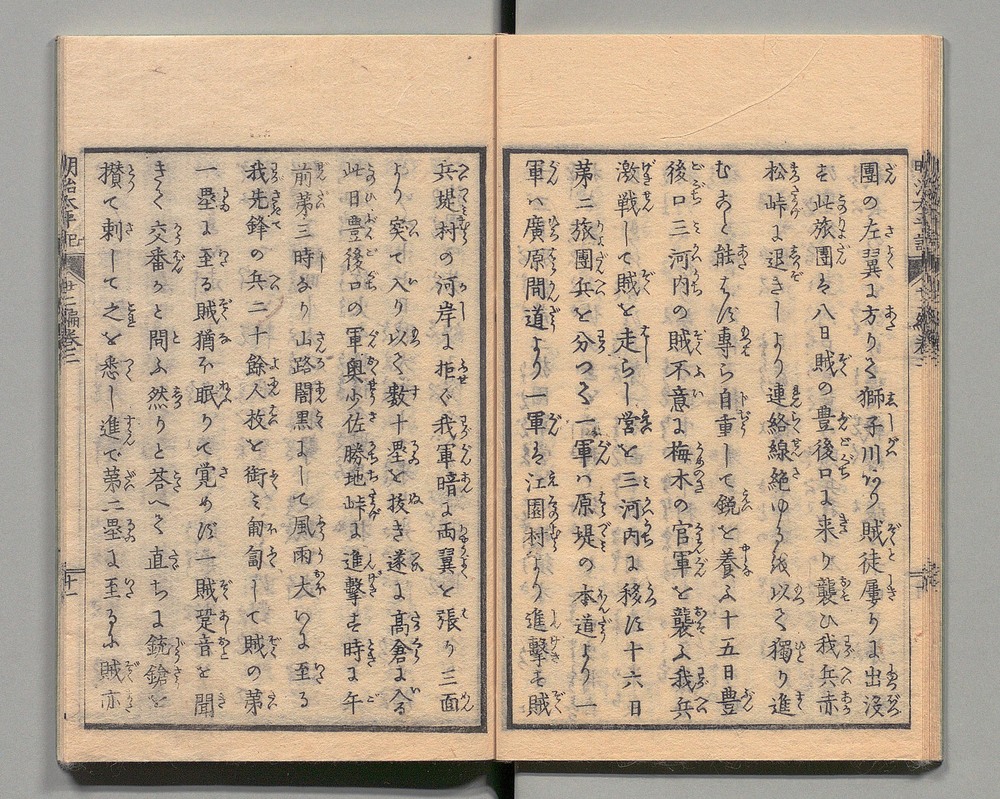 團の左翼に方りて獅子川辺り賊徒屢々出沒
す此旅團は八日賊の豊後口に来り襲ひ我兵赤
松峠に退きしより連絡線絶ゆる故以て獨り進
むこと能はず專ら自重して鋭を養ふ十五日豊
後口三河内の賊不意に梅木の官軍を襲ふ我兵
激戦して賊を走らし営を三河内に移す十六日
苐二旅團兵を分つて一軍ハ原堤の本道より一
軍ハ廣原間道より一軍は江園村より進擊す賊
兵堤村の河岸に拒ぐ我軍暗に両翼を張り三面
より突て入り以て數十塁を抜き遂に髙倉に入る
此日豊後口の軍奥少佐勝地峠に進擊す時に午
前苐三時なり山路闇黒にして風雨大いに至る
我先鋒の兵二十餘人枚を銜み匍匐して賊の苐
一塁に至る賊猶ほ眠りて覚めず一賊跫音を聞
きて交番かと問ふ然りと荅へて直ちに銃鎗を
攅て刺して之を悉し進で苐二塁に至るに賊亦
明治太平記
廿二編巻三
十一